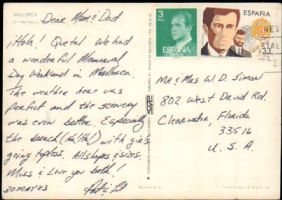 MALLORCA
Dear Mom & Dad
¡Hola! Qué tal We had
a wonderful Memorial
Day Weekend in Mallorca.
The weather here was
perfect and the scenery
was even better. Especially
the beach (Ha! Ha!) with girls
going topless. All shapes & sizes.
Miss & Love you both!
30 MAY 83
3 PTAS
ESPAÑA
ESPAÑA
Mr & Mrs W. D. Simon
802 West David Rd.
Clearwater, Florida
33516
U. S. A.